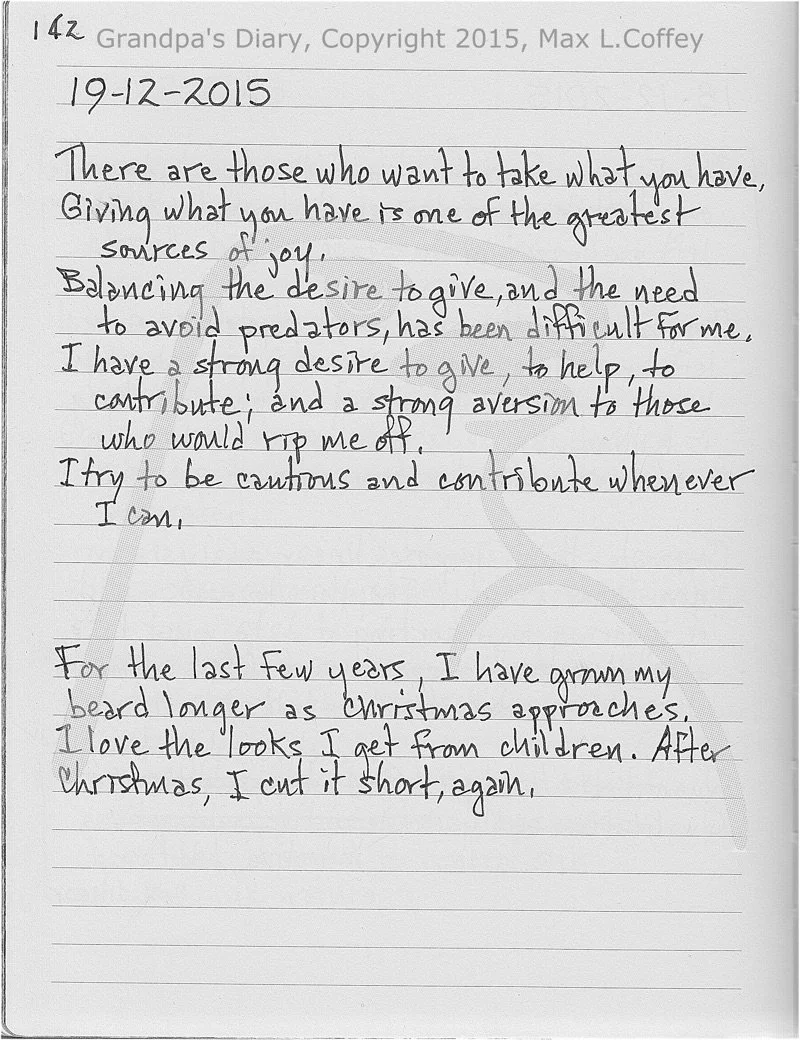 142
Grandpa's Diary, Copyright 2015, Max L.Coffey
19-12-2015
There are those who want to take what you have,
Giving what you have is one of the greatest
sources of joy.
Balancing the desire to give, and the need
to avoid predators, has been difficult for me.
I have a strong desire to give, to help, to
contribute; and a strong aversion to those
who would rip me off.
I try to be cautious and contribute whenever
I can.
For the last few years, I have grown my
beard longer as Christmas approaches.
I love the looks I get from children. After
Christmas, I cut it short, again.